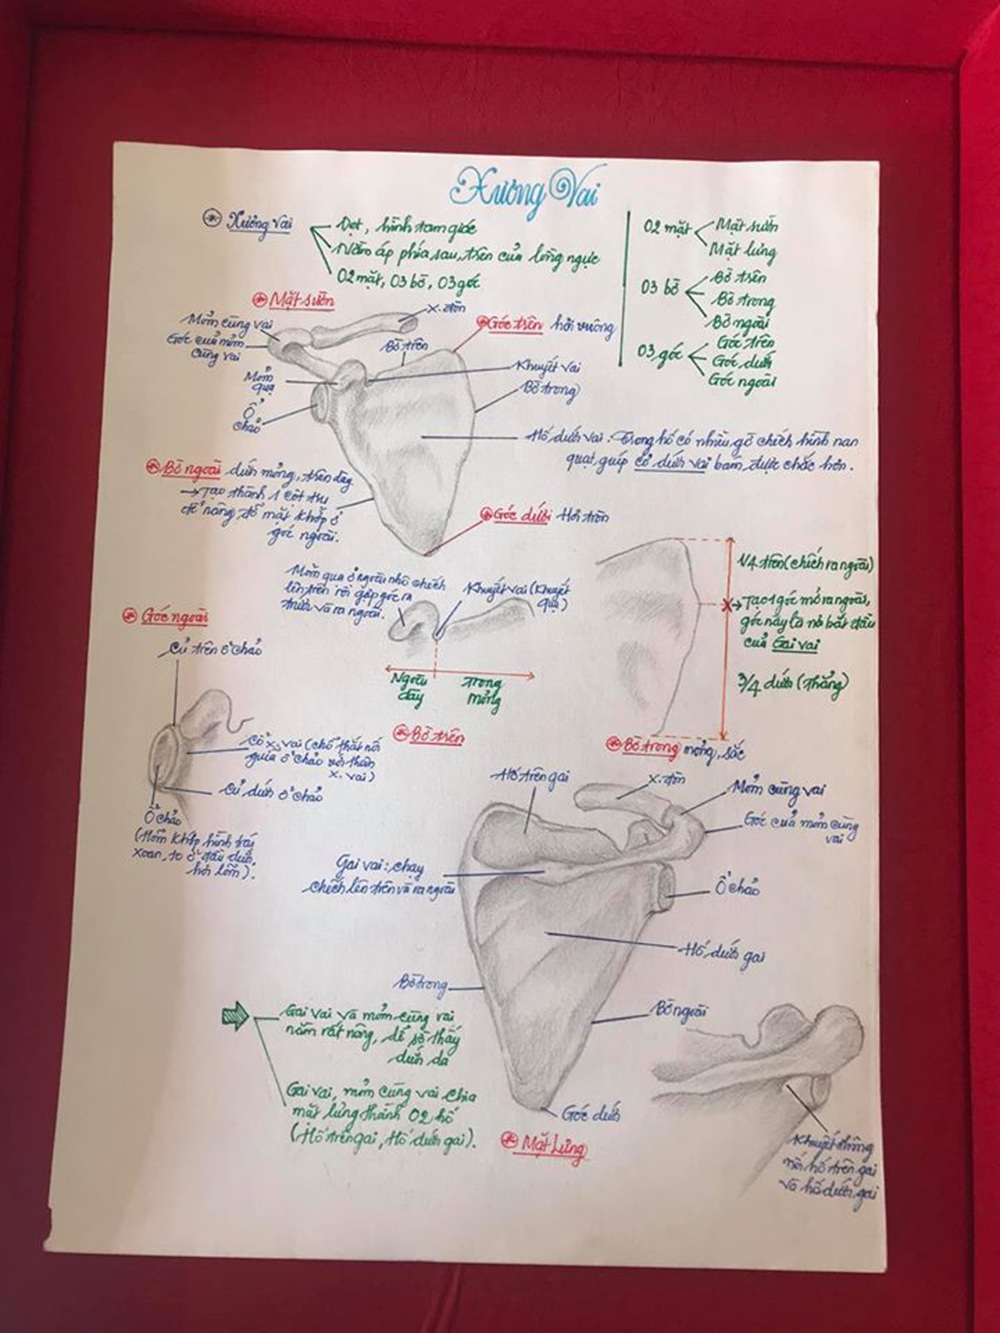 Xương Vai
Xương vai
Dẹt, hình tam giác
Nằm áp phía sau, trên của lồng ngực
02 mặt, 03 bờ, 03 góc
02 mặt
Mặt sườn
Mặt lưng
03 bờ
Bờ trên
Bờ trong
Bờ ngoài
03 góc
Góc trên
Góc dưới
Góc ngoài
Mặt sườn
Mỏm cùng vai
Góc của mỏm
cùng vai
Mỏm
quạ
Ổ
chảo
x. đòn
Bờ trên
Góc trên hơi vuông
Khuyết vai
Bờ trong
Hố dưới vai: Trong hố có nhiều gờ chếch hình nan
quạt, giúp cơ dưới vai bám được chắc hơn.
Bờ ngoài dưới mỏng, trên dày
→ Tạo thành 1 cột trụ
để nâng đỡ mặt khớp ở
góc ngoài.
Góc dưới Hơi tròn
Mỏm quạ ở ngoài nhô chếch
lên trên rồi gấp góc ra
trước và ra ngoài.
Khuyết vai (Khuyết
quạ)
Ngoài
dày
Trong
mỏng
Bờ trên
1/4 trên (chếch ra ngoài)
→ Tạo 1 góc mở ra ngoài,
góc này là nơi bắt đầu
của Gai vai
3/4 dưới (thẳng)
Bờ trong mỏng, sắc
Góc ngoài
Củ trên ổ chảo
Cổ x. vai (chỗ thắt nối
giữa ổ chảo với thân
x. vai)
Củ dưới ổ chảo
Ổ chảo
(Hõm khớp hình trái
xoan, to ở đầu dưới,
hơi lõm).
Hố trên gai
x. đòn
Mỏm cùng vai
Góc của mỏm cùng
vai
Gai vai: chạy
chếch lên trên và ra ngoài
Ổ chảo
Hố dưới gai
Bờ trong
Bờ ngoài
Góc dưới
Mặt Lưng
Gai vai và mỏm cùng vai
nằm rất nông, dễ sờ thấy
dưới da
Gai vai, mỏm cùng vai chia
mặt lưng thành 02 hố
(Hố trên gai, Hố dưới gai).
Khuyết thông
nối hố trên gai
và hố dưới gai